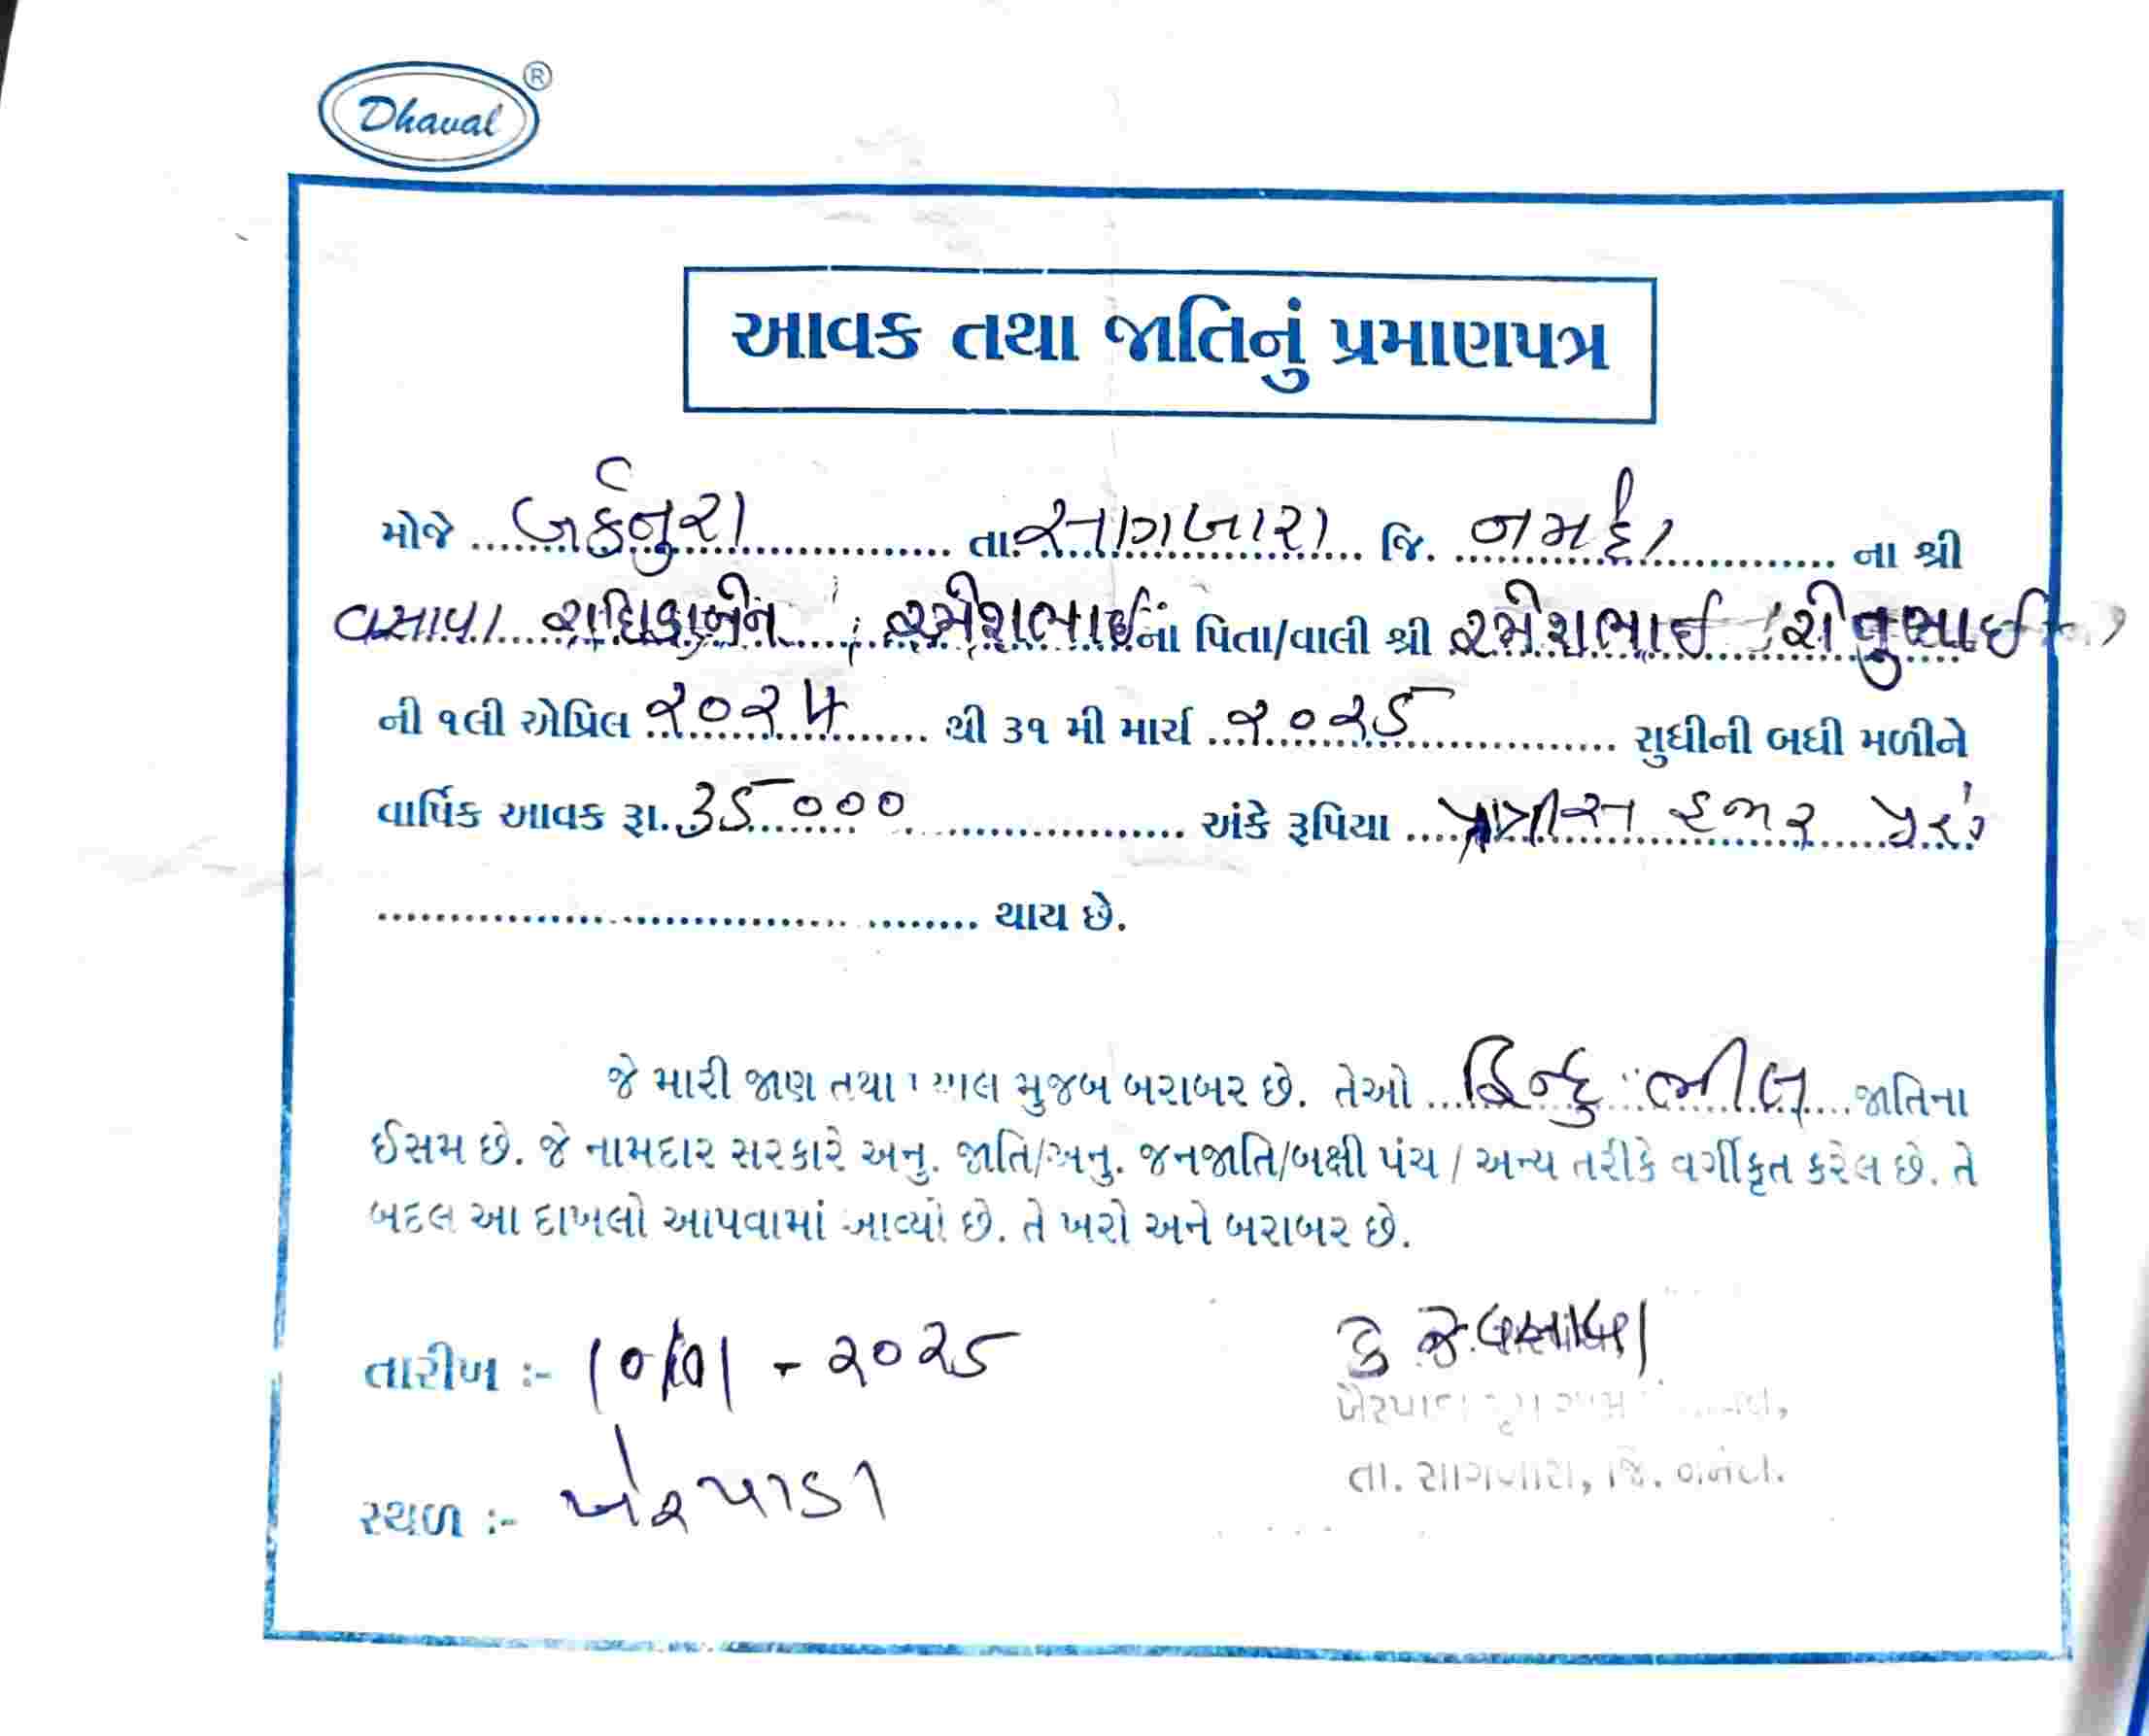 Dhaval ®
આવક તથા જાતિનું પ્રમાણપત્ર
મોજે તા. સાગબારા જિ. નર્મદા ના શ્રી
વસાવા રાધિકાબેન રમેશભાઈ નાં પિતા/વાલી શ્રી રમેશભાઈ
ની ૧લી એપ્રિલ ૨૦૨૪ થી ૩૧ મી માર્ચ ૨૦૨૫ સુધીની બધી મળીને
વાર્ષિક આવક રૂા. ૩૫૦૦૦ અંકે રૂપિયા હજાર પુરા
થાય છે.
જે મારી જાણ તથા મુજબ બરાબર છે. તેઓ હિન્દુ ભીલ જાતિના
ઈસમ છે. જે નામદાર સરકારે અનુ. જાતિ/અનુ. જનજાતિ/બક્ષી પંચ / અન્ય તરીકે વર્ગીકૃત કરેલ છે. તે
બદલ આ દાખલો આપવામાં આવ્યો છે. તે ખરો અને બરાબર છે.
તારીખ :- ૧૦/૦૧ - ૨૦૨૫
કે જે વસાવા
સ્થળ :- ખેરપાડા
તા. સાગબારા, જિ. નર્મદા.